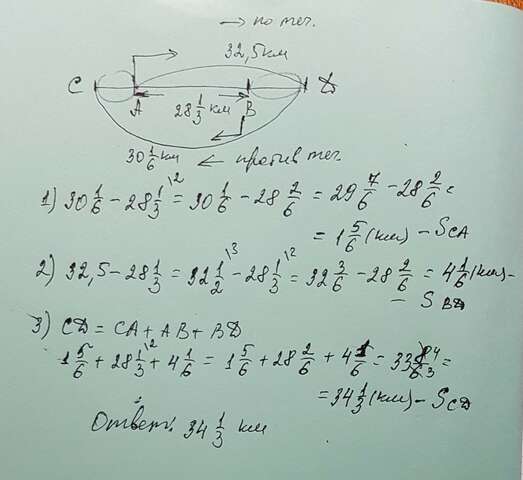 → по теч.
32,5км
C A 28 1/3 км B D
30 1/6 км ← против теч.
1) 30 1/6 − 28 1/3 \2 = 30 1/6 − 28 2/6 = 29 7/6 − 28 2/6 =
= 1 5/6 (км) − S CA
2) 32,5 − 28 1/3 = 32 1/2 \3 − 28 1/3 \2 = 32 3/6 − 28 2/6 = 4 1/6 (км) −
− S BD
3) CD = CA + AB + BD
1 5/6 + 28 1/3 \2 + 4 1/6 = 1 5/6 + 28 2/6 + 4 1/6 = 33 8/6 4/3 =
= 34 1/3 (км) − S CD
Ответ: 34 1/3 км